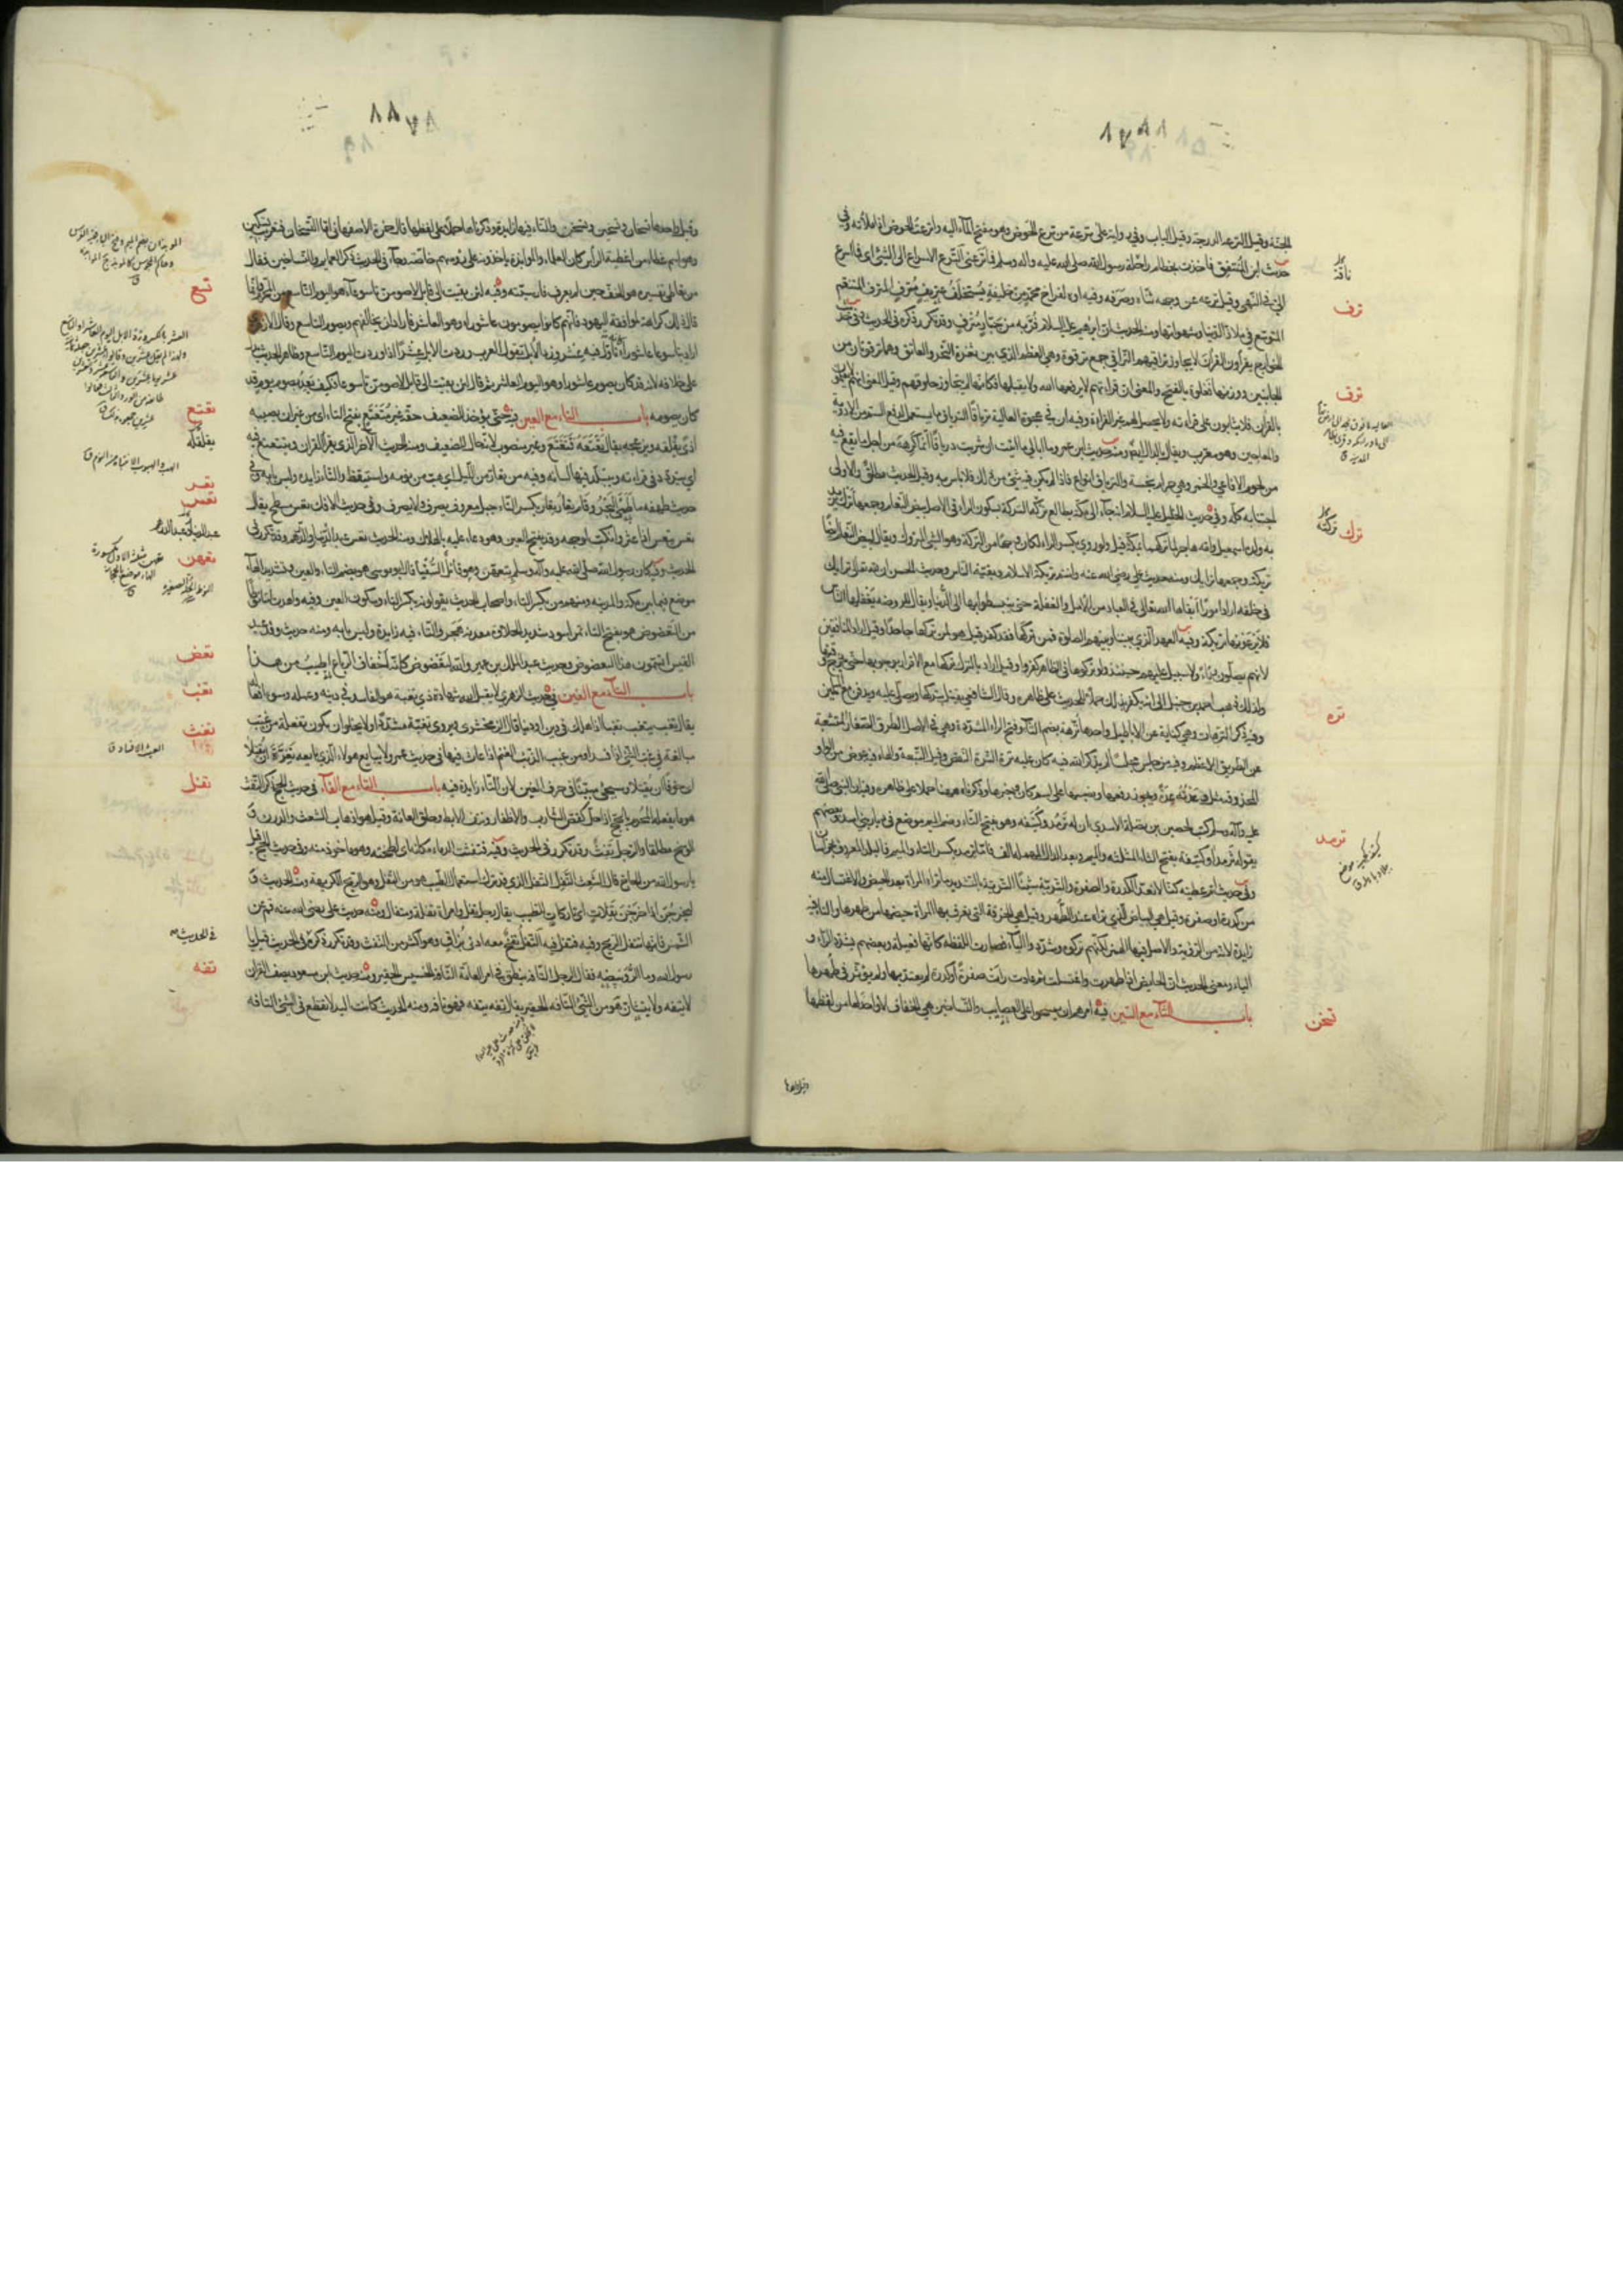 الجنة وقيل الترعة الدرجة وقيل الباب وفي رواية على ترعة من ترع الحوض وهو مفتح الماء اليه واترعت الحوض اذا ملأته وفي
حديث ابن المنتفق فاخذت بخطام راحلة رسول الله صلى الله عليه واله وسلم فما ترعني الترع الاسراع الى الشئ اى ما اسرع
الي في النهي وقيل ترعه عن وجهه ثناه وصرفه وفيه اوه لفراخ محمد من خليفة يستخلف عتريف مترف المترف المتنعم
المتوسع في ملاذ الدنيا وشهواتها ومنه الحديث ان ابرهيم عليه السلام فر به من جبار مترف وقد تكرر ذكره في الحديث وفي حديث
الخوارج يقرأون القرآن لا يجاوز تراقيهم التراقي جمع ترقوة وهي العظم الذي بين ثغرة النحر والعاتق وهما ترقوتان من
الجانبين ووزنها فعلوة بالفتح والمعنى ان قراءتهم لا يرفعها الله ولا يقبلها فكانها لم تتجاوز حلوقهم وقيل المعنى انهم لا يعملون
بالقرآن فلا يثابون على قراءته ولا يحصل لهم غير القراءة وفيه ان في عجوة العالية ترياقا الترياق ما يستعمل لدفع السم من الادوية
والمعاجين وهو معرب ويقال بالدال ايضا ومنه حديث ابن عمر وما ابالي ما اتيت ان شربت درياقا انما كرهه من اجل ما يقع فيه
من لحوم الافاعي والخمر وهي حرام نجسة والترياق انواع فاذا لم يكن فيه شئ من ذلك فلا باس به وقيل الحديث مطلق والاولى
اجتنابه كله وفي حديث الخليل عليه السلام انه جاء الى مكة يطالع تركته التركة بسكون الراء في الاصل بيض النعام وجمعها ترك يريد
به ولده اسمعيل وامه هاجر لما تركهما بمكة قيل ولو روي بكسر الراء لكان وجها من التركة وهو الشئ المتروك ويقال لبيض النعام ايضا
تريكة وجمعها ترايك ومنه حديث علي رضي الله عنه وانتم تريكة الاسلام وبقية الناس وحديث الحسن ان لله تعالى ترايك
في خلقه اراد امورا ابقاها الله تعالى في العباد من الامل والغفلة حتى ينبسطوا بها الى الدنيا ويقال للروضة يغفلها الناس
فلا يرعونها تريكة وفيه العهد الذي بيننا وبينهم الصلوة فمن تركها فقد كفر قيل هو لمن تركها جاحدا وقيل اراد المنافقين
لانهم يصلون رياء ولا سبيل عليهم حينئذ ولو تركوها في الظاهر كفروا وقيل اراد بالترك تركها مع الاقرار بوجوبها حتى يخرج وقتها
ولذلك ذهب احمد بن حنبل الى انه يكفر بذلك حملا للحديث على ظاهره وقال الشافعي يقتل بتركها ويصلى عليه ويدفن مع المسلمين
وفيه ذكر الترهات وهي كناية عن الاباطيل واحدها ترهة بضم التاء وفتح الراء المشددة وهي في الاصل الطرق الصغار المتشعبة
عن الطريق الاعظم وفيه من جلس مجلسا لم يذكر الله فيه كان عليه ترة الترة النقص وقيل التبعة والهاء فيه عوض من الواو
المحذوفة مثل وعدته عدة ويجوز رفعها ونصبها على اسم كان وخبرها وذكرناه ههنا حملا على ظاهره وفيه ان النبي صلى الله
عليه وآله وسلم كتب لحصين بن نضلة الاسدي ان له ترمد وكتيفة وهو بفتح التاء وضم الميم موضع في ديار بني اسد وبعضهم
يقوله ثرمدا وكتيفة بفتح الثاء المثلثة والميم وبعد الدال المهملة الف فاما ترمذ بكسر التاء والميم فالبلد المعروف بخراسان
وفي حديث ام عطية كنا لا نعد الكدرة والصفرة والترية شيئا الترية بالتشديد ما تراه المرأة بعد الحيض والاغتسال منه
من كدرة او صفرة وقيل هي البياض الذي تراه عند الطهر وقيل هي الخرقة التي تعرف بها المرأة حيضها من طهرها والتاء فيه
زايدة لانه من الرؤية والاصل فيها الهمز لكنهم تركوه وشددوا الياء فصارت اللفظة كانها فعيلة وبعضهم يشدد الراء و
الياء ومعنى الحديث ان الحايض اذا طهرت واغتسلت ثم عادت رأت صفرة او كدرة لم يعتد بها ولم يؤثر في طهرها
باب التاء مع السين فيه امرهم ان يمسحوا على العصايب والتساخين هي الخفاف لا واحد لها من لفظها
ناقة
ترف
ترق
ترك
تركته
تره
ترمد
تسخن
وقيل واحدها تسخان وتسخين وتسخن والتاء فيها زايدة وذكرناها حملا على لفظها قال حمزة الاصفهاني اما التسخان فتعريب تشكن
وهو اسم غطاء من اغطية الرأس كان العلماء والموابذة ياخذونه على رؤسهم خاصة وجاء في الحديث ذكر العمايم والتساخين فقال
من تعاطى تفسيره هو الخف حين لم يعرف فارسيته وفيه لئن بقيت الى قابل لاصومن تاسوعاء هو اليوم التاسع من المحرم وانما
قال ذلك كراهة لموافقة اليهود فانهم كانوا يصومون عاشوراء وهو العاشر فاراد ان يخالفهم ويصوم التاسع وقال الازهري
اراد بتاسوعاء عاشوراء كانه تأول فيه عشر ورد الابل تقول العرب وردت الابل عشرا اذا وردت اليوم التاسع وظاهر الحديث يدل
على خلافه لانه قد كان يصوم عاشوراء وهو اليوم العاشر ثم قال لئن بقيت الى قابل لاصومن تاسوعاء فكيف يعد بصوم يوم قد
كان يصومه باب التاء مع العين فيه حتى يؤخذ للضعيف حقه غير متعتع بفتح التاء اى من غير ان يصيبه
اذى يقلقه ويزعجه يقال تعتعه فتتعتع وغير منصوب لانه حال للضعيف ومنه الحديث الآخر الذي يقرأ القرآن ويتتعتع فيه
اى يتردد في قراءته ويتبلد فيها لسانه وفيه من تعار من الليل اى هب من نومه واستيقظ والتاء زايدة وليس بابه وفي
حديث طهفة ما طمى البحر وقام تعار تعار بكسر التاء جبل معروف يصرف ولا يصرف وفي حديث الافك تعس مسطح يقال
تعس يتعس اذا عثر وانكب لوجهه وقد يفتح العين وهو دعاء عليه بالهلاك ومنه الحديث تعس عبد الدينار والدرهم وقد تكرر في
الحديث وفيه كان رسول الله صلى الله عليه وآله وسلم بتعهن وهو قائل السقيا قال ابو موسى هو بضم التاء والعين وتشديد الهاء
موضع فيما بين مكة والمدينة ومنهم من يكسر التاء واصحاب الحديث يقولونه بكسر التاء وسكون العين وفيه واهدت لنا نوطا
من التعضوض هو بفتح التاء تمر اسود شديد الحلاوة معدنه هجر والتاء فيه زايدة وليس بابه ومنه حديث وفد عبد
القيس اتسمون هذا التعضوض وحديث عبد الملك بن عمير والله لتعضوض كانه اخفاف الرباع اطيب من هذا
باب التاء مع الغين في حديث الزهري لا يقبل الله شهادة ذي تغبة هو الفاسد في دينه وعمله وسوء افعاله
يقال تغب يتغب تغبا اذا هلك في دين او دنيا قال الزمخشري ويروى تغبة مشددا ولا يخلوا ان يكون تفعلة من غبب
مبالغة في غب الشئ اذا فسد او من غبب الذئب الغنم اذا عاث فيها في حديث عمر ولا يبايع هو ولا الذي بايعه تغرة ان يقتلا
اى خوفا ان يقتلا وسيجئ مبينا في حرف الغين لان التاء زايدة فيه باب التاء مع الفاء في حديث الحج ذكر التفث
هو ما يفعله المحرم بالحج اذا حل كقص الشارب والاظفار ونتف الابط وحلق العانة وقيل هو اذهاب الشعث والدرن و
الوسخ مطلقا والرجل تفث وقد تكرر في الحديث وفيه فتفثت الدماء مكانه اى لطخته وهو ماخوذ منه وفي حديث الحج قيل
يا رسول الله من الحاج قال الشعث التفل التفل الذي قد ترك استعمال الطيب هو من التفل وهو الريح الكريهة ومنه الحديث و
ليخرجن اذا خرجن تفلات اى تاركات للطيب يقال رجل تفل وامرأة تفلة ومتفال ومنه حديث علي رضي الله عنه قم عن
الشمس فانها تتفل الريح وفيه فتفل فيه التفل نفخ معه ادنى بزاق وهو اكثر من النفث وقد تكرر ذكره في الحديث قيل يا
رسول الله وما الرويبضة فقال الرجل التافه ينطق في امر العامة التافه الخسيس الحقير ومنه حديث ابن مسعود يصف القرآن
لا يتفه ولا يتشان هو من الشئ التافه الحقير يقال تفه يتفه فهو تافه ومنه الحديث كانت اليد لا تقطع في الشئ التافه
تسع
تعتع
يقلقله
تعر
تعس
تعهن
تعض
تغب
تفث
تفل
في الحديث
تفه